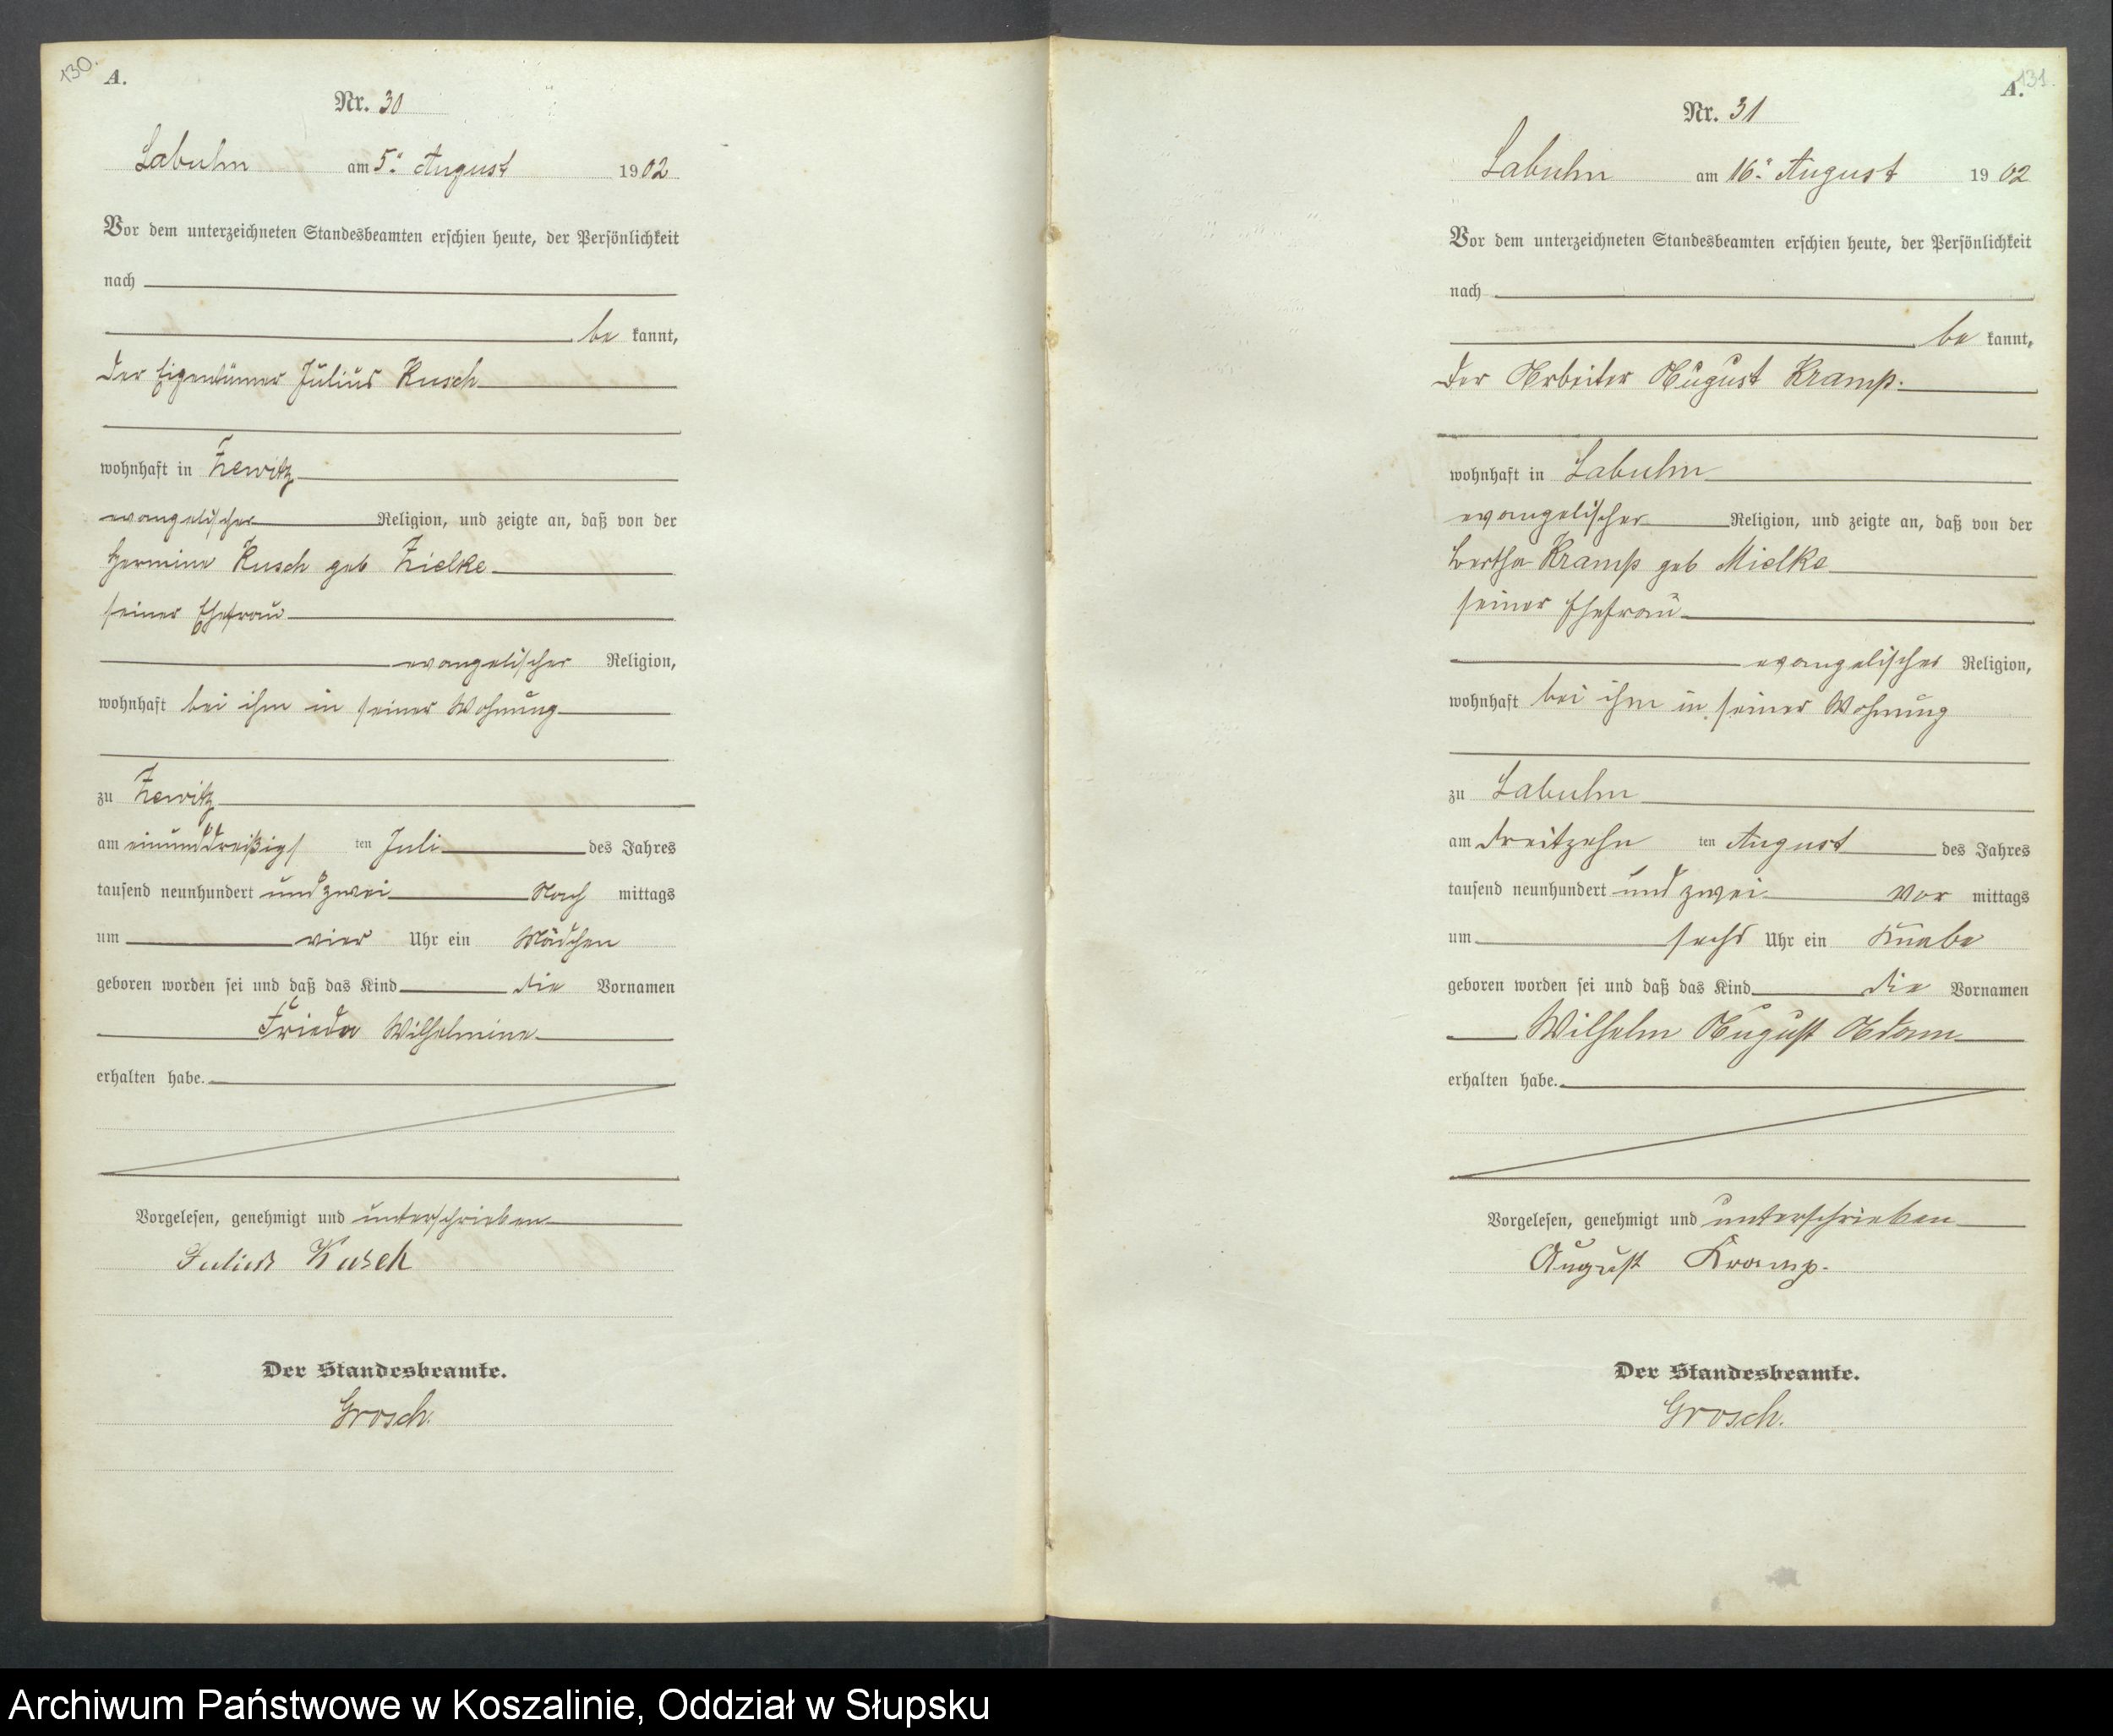 130.
A.
Nr. 30
Labuhn am 5. August 1902
Vor dem unterzeichneten Standesbeamten erschien heute, der Persönlichkeit
nach
be kannt,
der Eigentümer Julius Kusch
wohnhaft in Zewitz
evangelischer Religion, und zeigte an, daß von der
Hermine Kusch geb Zielke
seiner Ehefrau
evangelischer Religion,
wohnhaft bei ihm in seiner Wohnung
zu Zewitz
am einunddreißigs ten Juli des Jahres
tausend neunhundert und zwei Nach mittags
um vier Uhr ein Mädchen
geboren worden sei und daß das Kind die Vornamen
Frieda Wilhelmine
erhalten habe.
Vorgelesen, genehmigt und unterschrieben
Julius Kusch
Der Standesbeamte.
Grosch.
131.
A.
Nr. 31
Labuhn am 16. August 1902
Vor dem unterzeichneten Standesbeamten erschien heute, der Persönlichkeit
nach
be kannt,
der Arbeiter August Kramp.
wohnhaft in Labuhn
evangelischer Religion, und zeigte an, daß von der
Bertha Kramp geb Mielke
seiner Ehefrau
evangelischer Religion,
wohnhaft bei ihm in seiner Wohnung
zu Labuhn
am dreitzehn ten August des Jahres
tausend neunhundert und zwei Vor mittags
um sechs Uhr ein Knabe
geboren worden sei und daß das Kind die Vornamen
Wilhelm August Adam
erhalten habe.
Vorgelesen, genehmigt und unterschrieben
August Kramp.
Der Standesbeamte.
Grosch.
Archiwum Państwowe w Koszalinie, Oddział w Słupsku